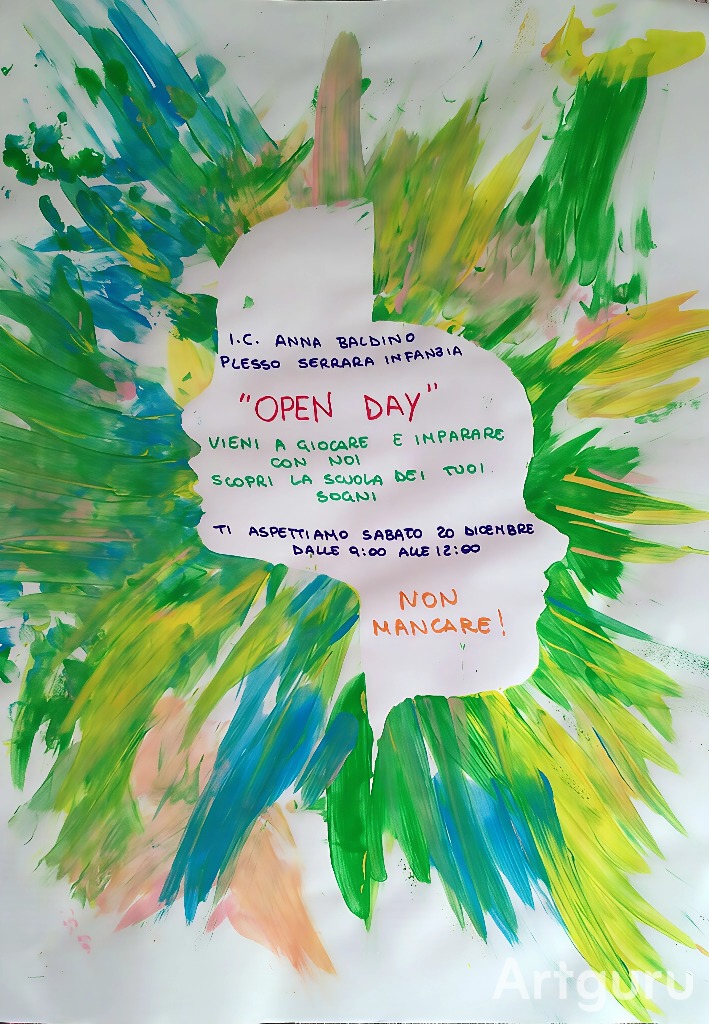 I.C. ANNA BALDINO
PLESSO SERRARA INFANZIA
"OPEN DAY"
VIENI A GIOCARE E IMPARARE
CON NOI
SCOPRI LA SCUOLA DEI TUOI
SOGNI
TI ASPETTIAMO SABATO 20 DICEMBRE
DALLE 9:00 ALLE 12:00
NON
MANCARE!
Artguru